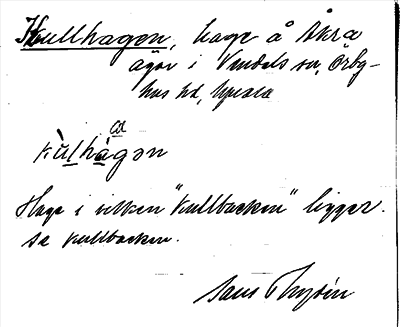 Kullhagen, hage å Åkra
ägor i Vendels sn, Örby-
hus hd, Upsala
kùlhágən
Hage i vilken "Kullbacken" ligger.
se Kullbacken.